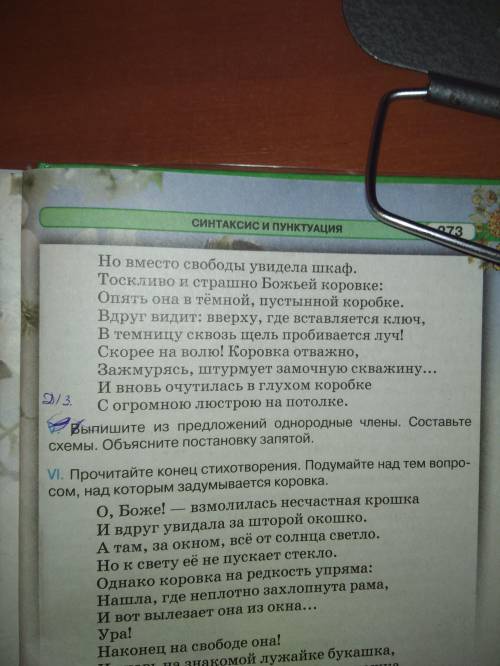 СИНТАКСИС И ПУНКТУАЦИЯ
273
Но вместо свободы увидела шкаф.
Тоскливо и страшно Божьей коровке:
Опять она в тёмной, пустынной коробке.
Вдруг видит: вверху, где вставляется ключ,
В темницу сквозь щель пробивается луч!
Скорее на волю! Коровка отважно,
Зажмурясь, штурмует замочную скважину...
И вновь очутилась в глухом коробке
С огромною люстрою на потолке.
Д/З.
Выпишите из предложений однородные члены. Составьте
схемы. Объясните постановку запятой.
VI. Прочитайте конец стихотворения. Подумайте над тем вопро-
сом, над которым задумывается коровка.
О, Боже! — взмолилась несчастная крошка
И вдруг увидала за шторой окошко.
А там, за окном, всё от солнца светло.
Но к свету её не пускает стекло.
Однако коровка на редкость упряма:
Нашла, где неплотно захлопнута рама,
И вот вылезает она из окна...
Ура!
Наконец на свободе она!
на знакомой лужайке букашка,